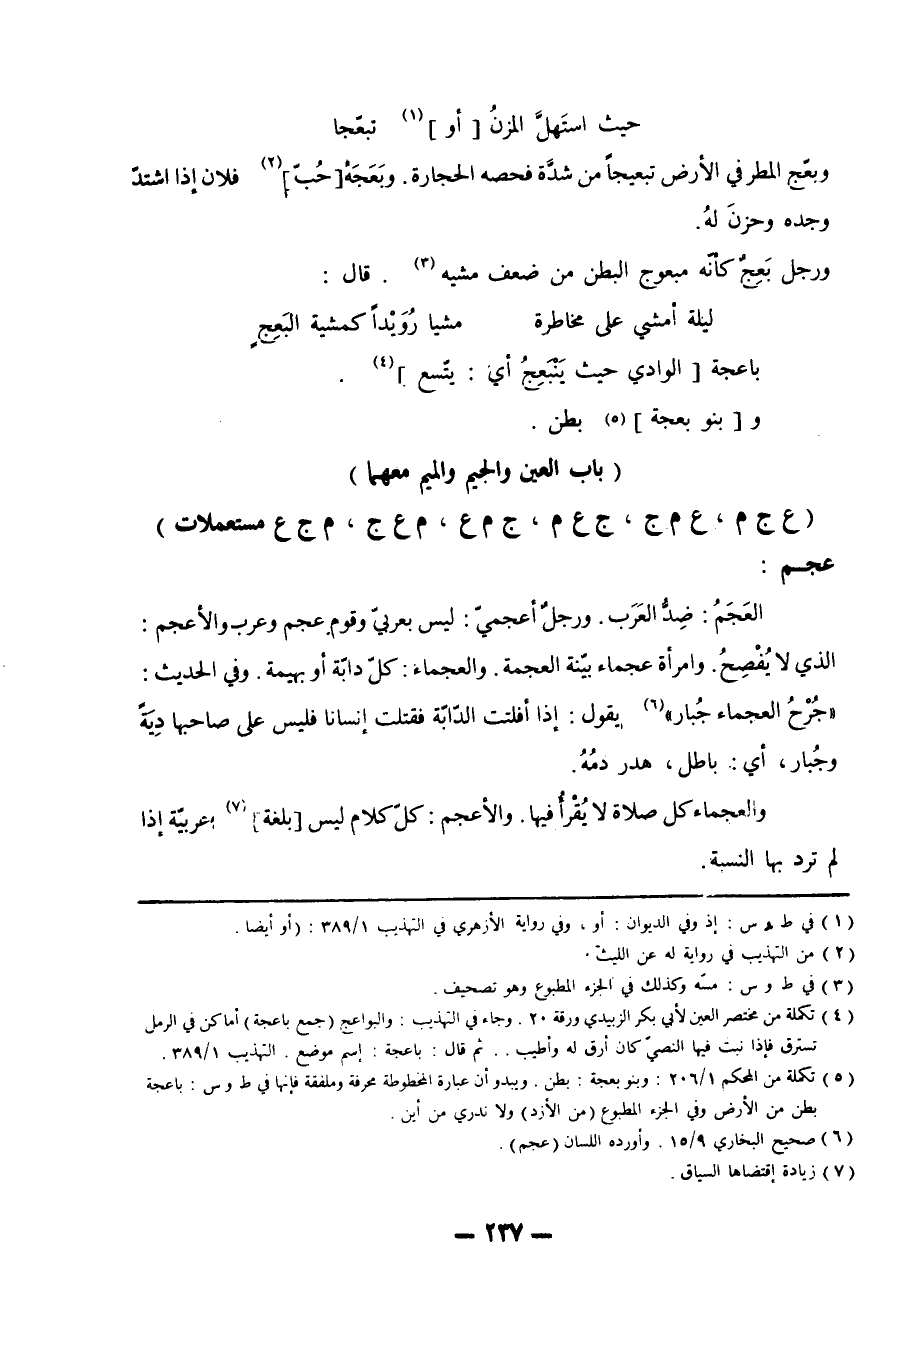 حيث استَهلَّ المزنُ [ أو ] (١) تبعّجا
وبعّج المطر في الأرض تبعيجاً من شدَّة فحصه الحجارة. وبَعَجَهُ [ حُبّ ] (٢) فلان إذا اشتدّ
وجده وحزنَ لهُ.
ورجل بَعِجٌ كأنّه مبعوج البطن من ضعف مشيه (٣) . قال :
ليلة أمشي على مخاطرة مشيا رُوَيْداً كمشية البَعِجِ
باعجة [ الوادي حيث يَنْبَعِجُ أي : يتّسع ] (٤) .
و [ بنو بعجة ] (٥) بطن .
( باب العين والجيم والميم معهما )
( ع ج م ، ع م ج ، ج ع م ، ج م ع ، م ع ج ، م ج ع مستعملات )
عجـم :
العَجَمُ : ضِدُّ العَرَب. ورجلٌ أعجميّ : ليس بعربيّ وقوم عجم وعرب والأعجم :
الذي لا يُفْصِحُ. وامرأة عجماء بيّنة العجمة. والعجماء : كلّ دابّة أو بهيمة. وفي الحديث :
«جُرْحُ العجماء جُبار» (٦) يقول : إذا أفلتت الدّابّة فقتلت إنسانا فليس على صاحبها دِيَةً
وجُبار ، أي : باطل ، هدر دمُهُ.
والعجماء كل صلاة لا يُقْرأُ فيها. والأعجم : كلّ كلام ليس [بلغة] (٧) عربيّة إذا
لم ترد بها النسبة.
(١) في ط و س : إذ وفي الديوان : أو ، وفي رواية الأزهري في التهذيب ٣٨٩/١ : (أو أيضا .
(٢) من التهذيب في رواية له عن الليث .
(٣) في ط و س : مسّه وكذلك في الجزء المطبوع وهو تصحيف .
(٤) تكملة من مختصر العين لأبي بكر الزبيدي ورقة ٢٠ . وجاء في التهذيب : والبواعج (جمع باعجة) أماكن في الرمل
تسترق فإذا نبت فيها النصيّ كان أرق له وأطيب . . ثم قال : باعجة : إسم موضع . التهذيب ٣٨٩/١ .
(٥) تكملة من المحكم ٢٠٦/١ : وبنو بعجة : بطن . ويبدو أن عبارة المخطوطة محرفة وملفقة فإنها في ط و س : باعجة
بطن من الأرض وفي الجزء المطبوع (من الأزد) ولا ندري من أين .
(٦) صحيح البخاري ١٥/٩ . وأورده اللسان (عجم) .
(٧) زيادة إقتضاها السياق .
— ٢٣٧ —